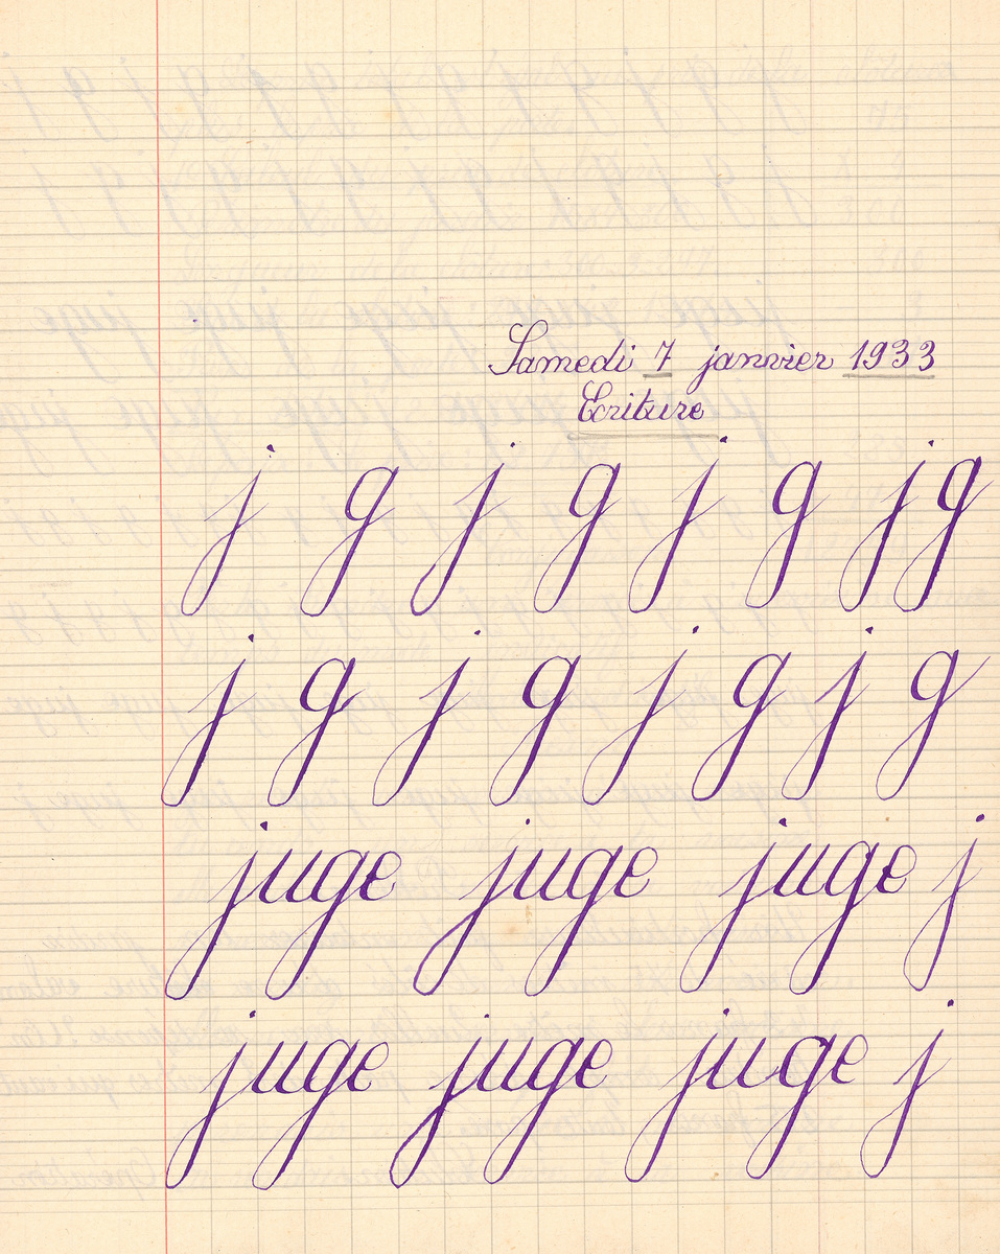 Samedi 7 janvier 1933
Ecriture
j g j g j g j g
j g j g j g j g
juge juge juge j
juge juge juge j